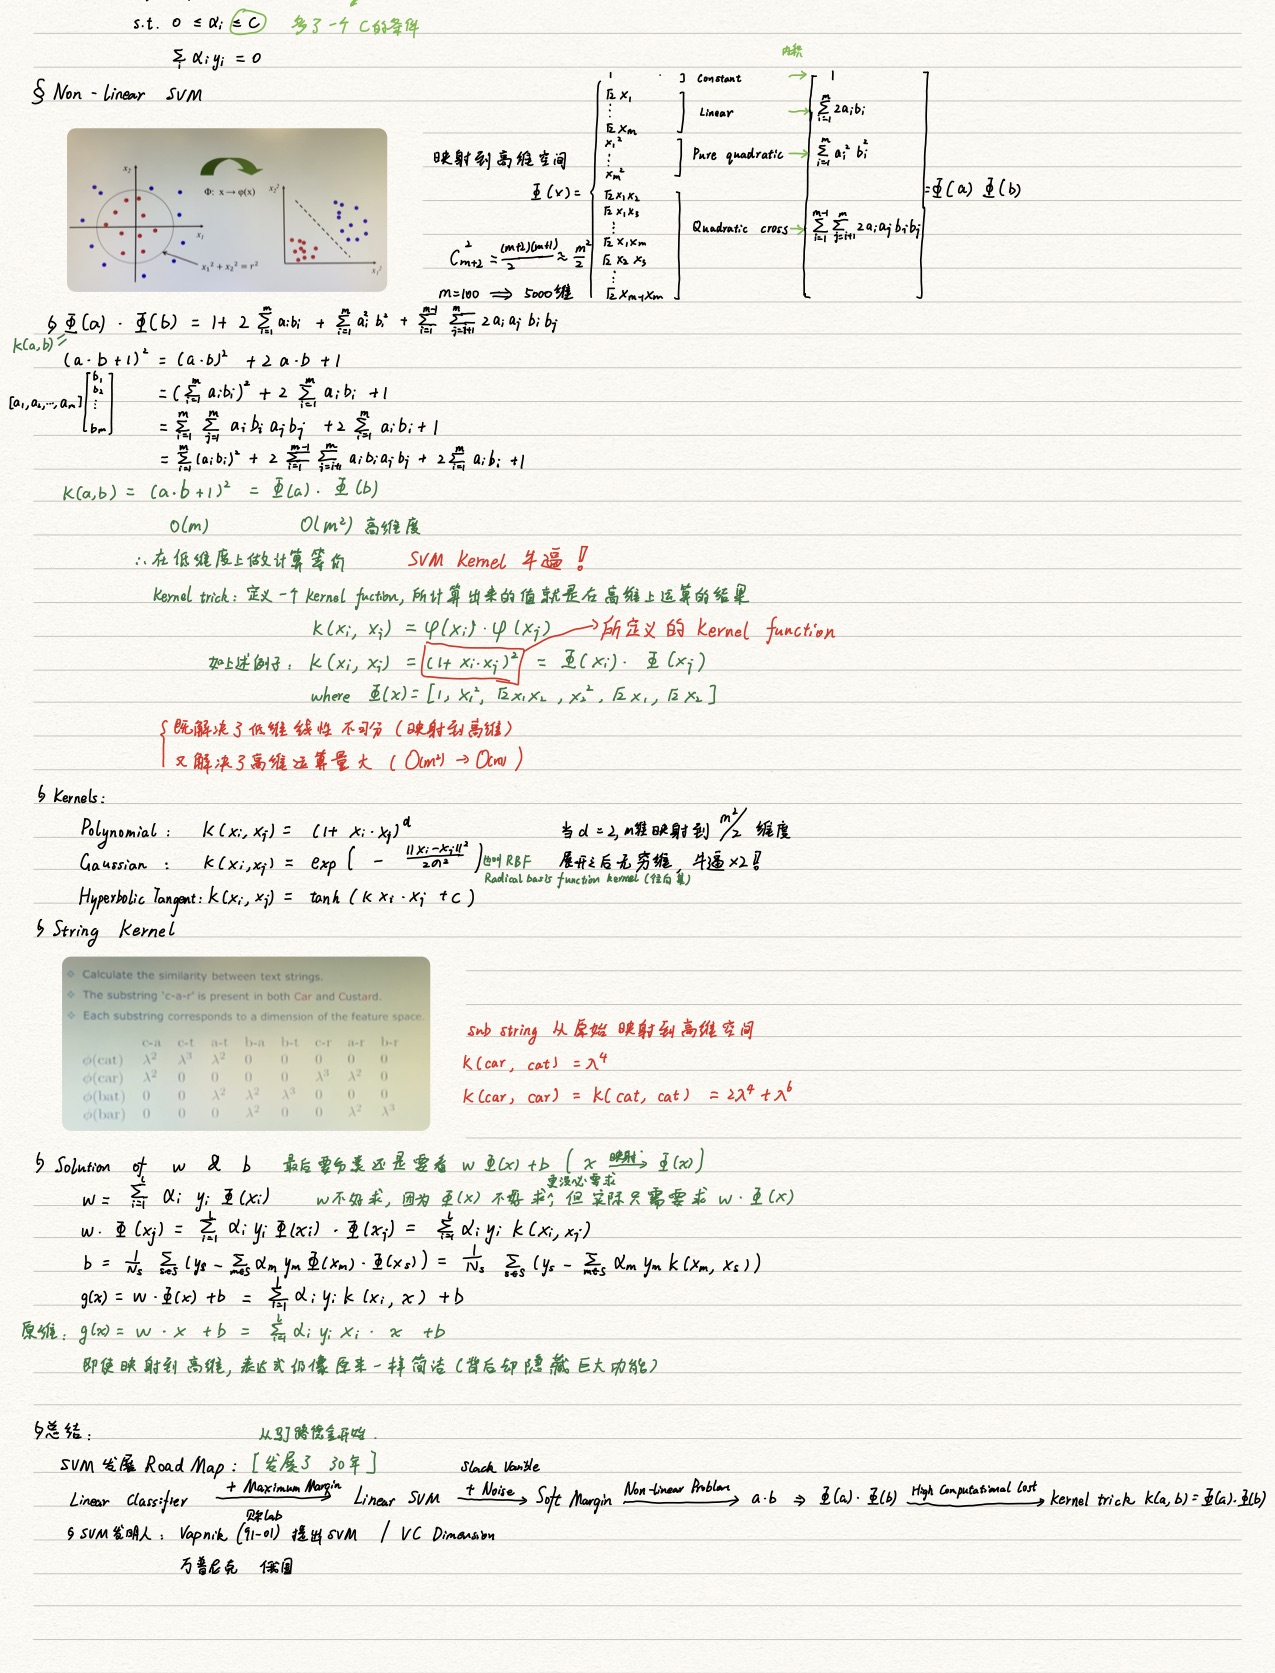 s.t. 0 ≤ αi ≤ C 多了一个 C的条件
Σi αi yi = 0
§ Non-linear SVM
x2
x1
Φ: x → φ(x)
x1² + x2² = r²
x2²
x1²
映射到高维空间
Φ(x) =
1 ] Constant
√2 x1
⋮
√2 xm
] Linear
x1²
⋮
xm²
] Pure quadratic
√2 x1x2
√2 x1x3
⋮
√2 x1xm
√2 x2 x3
⋮
√2 xm-1xm
] Quadratic cross
内积
→ 1
→ Σ_{i=1}^{m} 2aibi
→ Σ_{i=1}^{m} ai² bi²
→ Σ_{i=1}^{m-1} Σ_{j=i+1}^{m} 2ai aj bi bj
= Φ(a) Φ(b)
C²_{m+2} = (m+2)(m+1)/2 ≈ m²/2
m=100 ⇒ 5000维
Φ(a) · Φ(b) = 1 + 2 Σ_{i=1}^{m} aibi + Σ_{i=1}^{m} ai² bi² + Σ_{i=1}^{m-1} Σ_{j=i+1}^{m} 2ai aj bi bj
K(a,b) =
(a·b+1)² = (a·b)² + 2 a·b + 1
[a1, a2, ⋯, am] [b1 b2 ⋮ bm]
= (Σ_{i=1}^{m} aibi)² + 2 Σ_{i=1}^{m} aibi + 1
= Σ_{i=1}^{m} Σ_{j=1}^{m} ai bi aj bj + 2 Σ_{i=1}^{m} aibi + 1
= Σ_{i=1}^{m} (aibi)² + 2 Σ_{i=1}^{m-1} Σ_{j=i+1}^{m} aibiajbj + 2 Σ_{i=1}^{m} aibi + 1
K(a,b) = (a·b+1)² = Φ(a) · Φ(b)
O(m) O(m²) 高维度
∴ 在低维度上做计算等价 SVM Kernel 牛逼!!
Kernel trick: 定义一个 kernel fuction, 所计算出来的值就是在高维上运算的结果
K(xi, xj) = φ(xi)·φ(xj) → 所定义的 Kernel function
如上述例子: K(xi, xj) = (1+ xi·xj)² = Φ(xi) · Φ(xj)
where Φ(x) = [1, x1², √2x1x2, x2², √2x1, √2x2]
{ 既解决了低维线性不可分 (映射到高维)
又解决了高维运算量大 (O(m²) → O(m))
Kernels:
Polynomial: K(xi, xj) = (1+ xi·xj)^d 当d=2, m维映射到 m²/2 维度
Gaussian: K(xi,xj) = exp( - ||xi-xj||²/2σ² ) 也叫RBF 展开之后无穷维, 牛逼×2!!
Radical basis function kernel (径向基)
Hyperbolic Tangent: K(xi, xj) = tanh (K xi·xj + c)
String Kernel
❖ Calculate the similarity between text strings.
❖ The substring 'c-a-r' is present in both Car and Custard.
❖ Each substring corresponds to a dimension of the feature space.
c-a c-t a-t b-a b-t c-r a-r b-r
ϕ(cat) λ² λ³ λ² 0 0 0 0 0
ϕ(car) λ² 0 0 0 0 λ³ λ² 0
ϕ(bat) 0 0 λ² λ² λ³ 0 0 0
ϕ(bar) 0 0 0 λ² 0 0 λ² λ³
sub string 从原始映射到高维空间
K(car, cat) = λ⁴
K(car, car) = K(cat, cat) = 2λ⁴ + λ⁶
Solution of w & b 最后要分类还是要看 w Φ(x) + b [x 映射→ Φ(x)]
更没必要求
w = Σ_{i=1}^{l} αi yi Φ(xi) w不好求, 因为 Φ(x) 不好求; 但实际只需要求 w·Φ(x)
w·Φ(xj) = Σ_{i=1}^{l} αi yi Φ(xi)·Φ(xj) = Σ_{i=1}^{l} αi yi K(xi, xj)
b = 1/Ns Σ_{s∈S} (ys − Σ_{m∈S} αm ym Φ(xm)·Φ(xs)) = 1/Ns Σ_{s∈S} (ys − Σ_{m∈S} αm ym K(xm, xs))
g(x) = w·Φ(x) + b = Σ_{i=1}^{l} αi yi K(xi, x) + b
原维: g(x) = w · x + b = Σ_{i=1}^{l} αi yi xi · x + b
即使映射到高维, 表达式仍像原来一样简洁 (背后却隐藏巨大功能)
总结:
SVM 发展 Road Map: [发展了 30年]
Linear Classifier + Maximum Margin → Linear SVM Slack Varible + Noise → Soft Margin Non-linear Problem → a·b ⇒ Φ(a)·Φ(b) High Computational Cost → kernel trick K(a,b) = Φ(a)·Φ(b)
贝尔Lab
SVM发明人: Vapnik (91-01) 提出SVM / VC Dimension
万普尼克 俄国